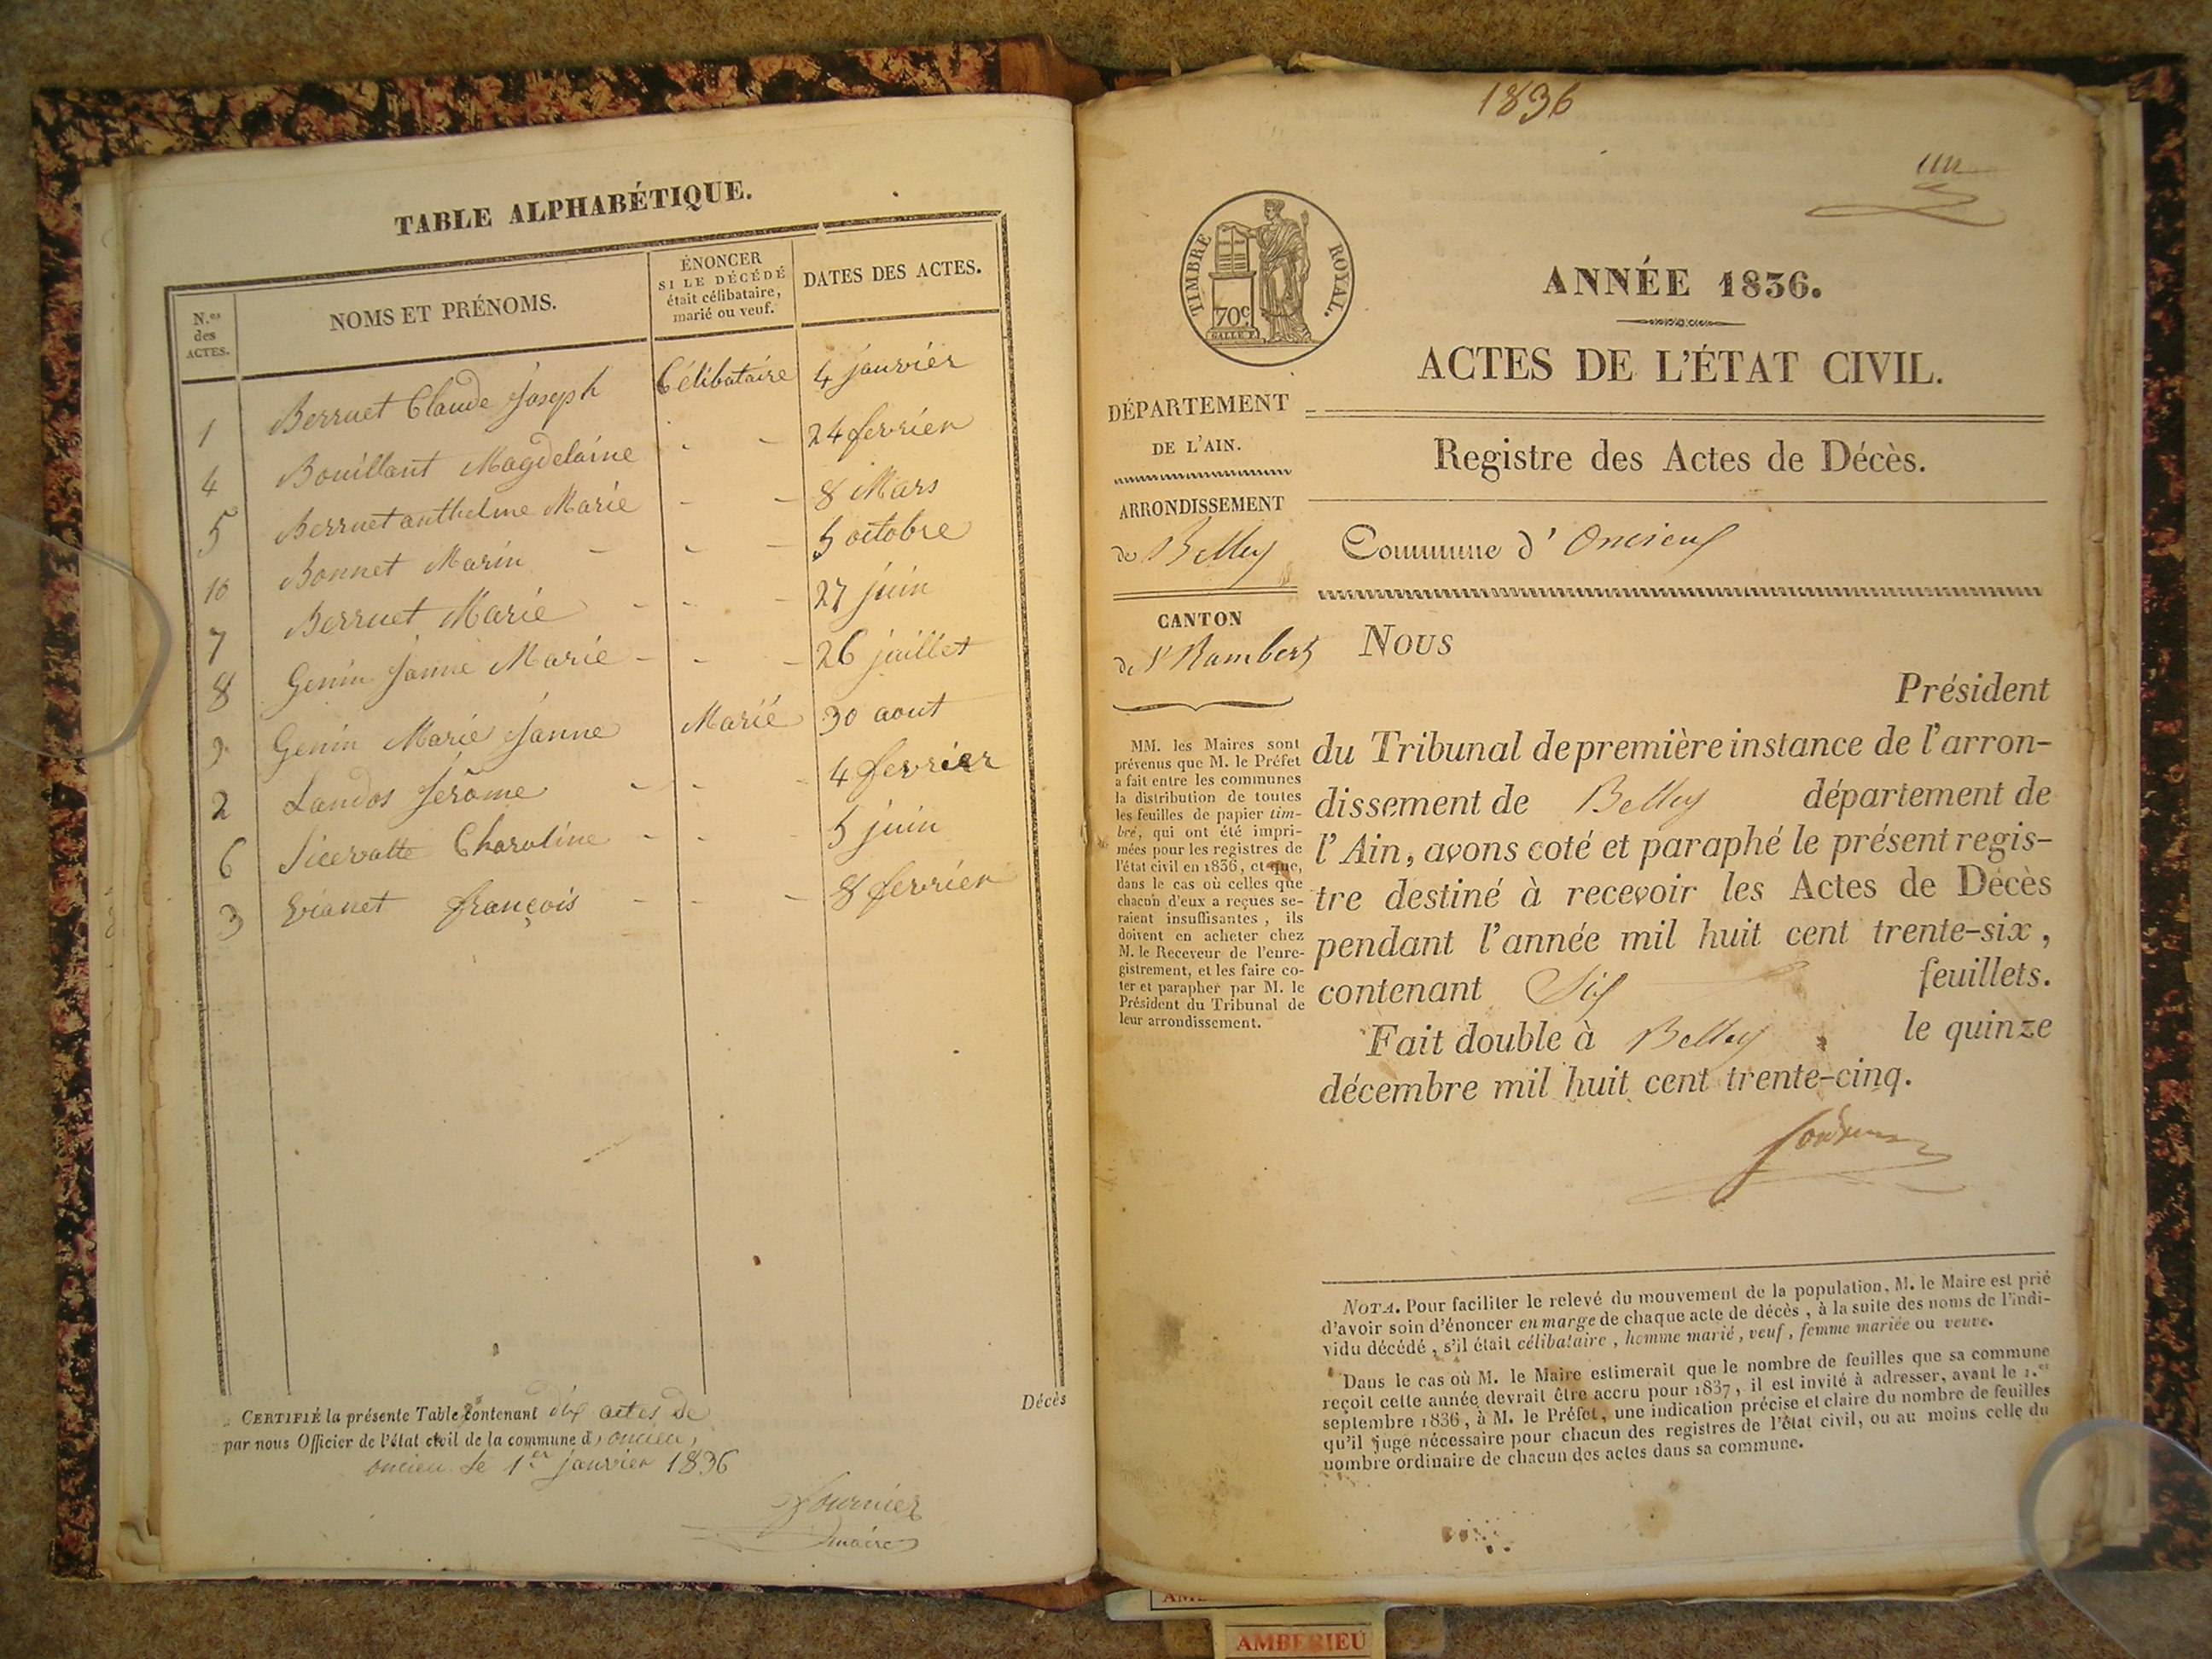 TABLE ALPHABÉTIQUE.
N.os des ACTES.
NOMS ET PRÉNOMS.
ÉNONCER
SI LE DÉCÉDÉ
était célibataire,
marié ou veuf.
DATES DES ACTES.
1 Berruet Claude Joseph Célibataire 4 janvier
4 Bouillant Magdelaine - - 24 fevrier
5 Berruet anthelme Marie - - 8 Mars
10 Bonnet Marin - - - 5 octobre
7 Berruet Marie - - - 27 juin
8 Genin Janne Marie - - - 26 juillet
9 Genin Marie Janne Marié 30 aout
2 Landos Jérôme - - - 4 fevrier
6 Charoline - - - 5 juin
3 françois - - - 8 fevrier
Décès
CERTIFIÉ la présente Table contenant dix actes de
par nous Officier de l'état civil de la commune d'oncieu,
oncieu le 1er janvier 1836
fournier
maire
1836
un
TIMBRE ROYAL.
70c
ANNÉE 1836.
ACTES DE L'ÉTAT CIVIL.
DÉPARTEMENT
DE L'AIN.
Registre des Actes de Décès.
ARRONDISSEMENT
de Belley
Commune d'Oncieux
CANTON
de St Rambert
MM. les Maires sont
prévenus que M. le Préfet
a fait entre les communes
la distribution de toutes
les feuilles de papier tim-
bré, qui ont été impri-
mées pour les registres de
l'état civil en 1836, et que,
dans le cas où celles que
chacun d'eux a reçues se-
raient insuffisantes, ils
doivent en acheter chez
M. le Receveur de l'enre-
gistrement, et les faire co-
ter et parapher par M. le
Président du Tribunal de
leur arrondissement.
Nous
Président
du Tribunal de première instance de l'arron-
dissement de Belley département de
l'Ain, avons coté et paraphé le présent regis-
tre destiné à recevoir les Actes de Décès
pendant l'année mil huit cent trente-six,
contenant Six feuillets.
Fait double à Belley le quinze
décembre mil huit cent trente-cinq.
NOTA. Pour faciliter le relevé du mouvement de la population, M. le Maire est prié
d'avoir soin d'énoncer en marge de chaque acte de décès, à la suite des noms de l'indi-
vidu décédé, s'il était célibataire, homme marié, veuf, femme mariée ou veuve.
Dans le cas où M. le Maire estimerait que le nombre de feuilles que sa commune
reçoit cette année devrait être accru pour 1837, il est invité à adresser, avant le 1.er
septembre 1836, à M. le Préfet, une indication précise et claire du nombre de feuilles
qu'il juge nécessaire pour chacun des registres de l'état civil, ou au moins celle du
nombre ordinaire de chacun des actes dans sa commune.
AMBERIEU